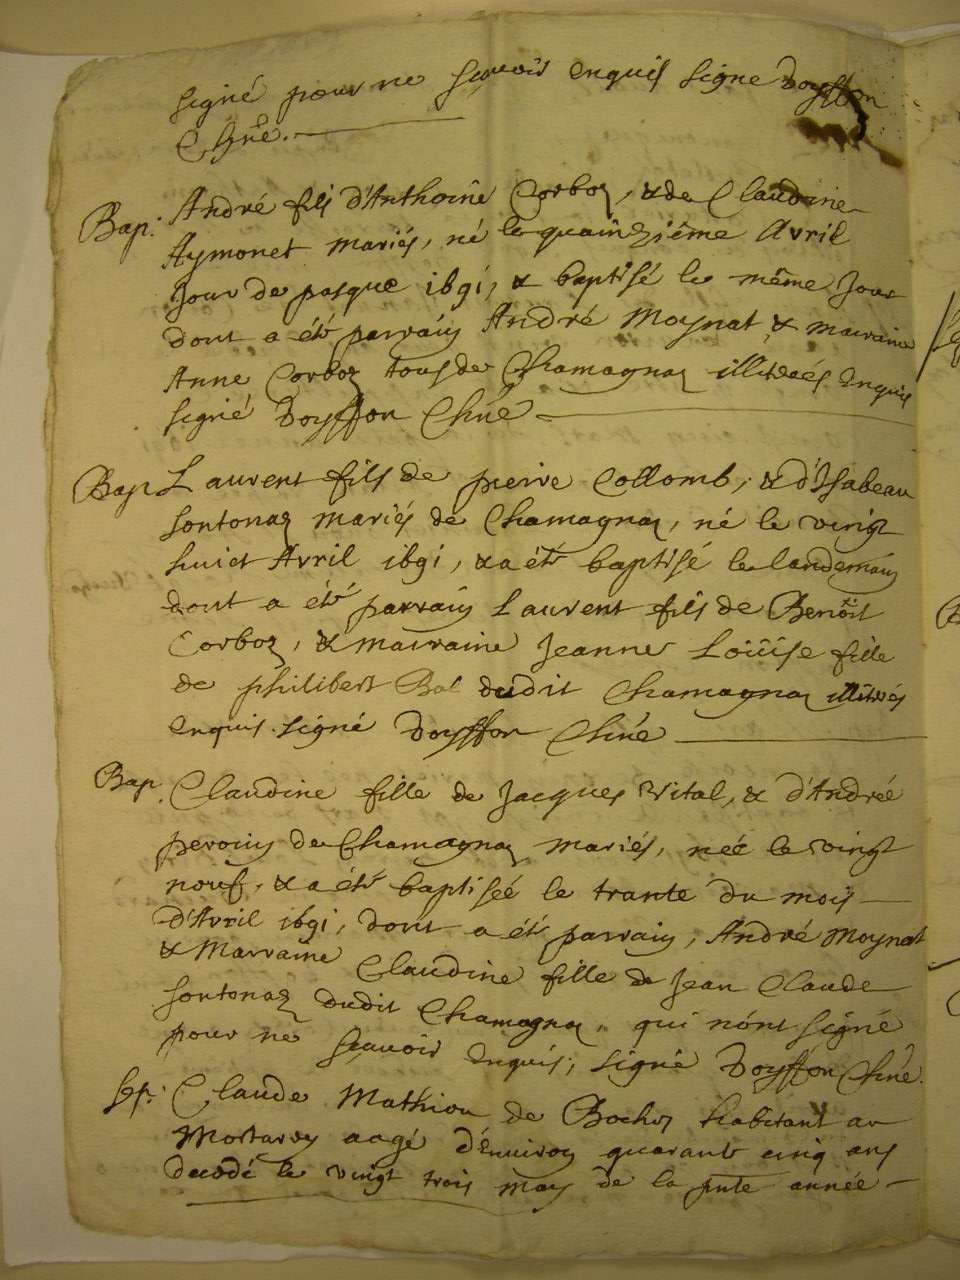 signé pour ne sçavoir enquis signe Doysson
Chñe.
Bap: André fils d'Anthoine Corboz, & de Claudine
Aymonet mariés, né le quainzième Avril
Jour de pasque 1691, & baptisé le même Jour
dont a été parrain André Moynat & marraine
Anne Corboz tous de Chamagnaz illiterés enquis
signé Doysson Chñe
Bap Laurent fils de pierre Collomb, & d'Isabeau
sontonaz mariés de Chamagnaz, né le vingt
huict Avril 1691, & a été baptisé le landemain
dont a été parrain Laurent fils de Benoît
Corboz, & marraine Jeanne Loüise fille
de philibert Bal dudit Chamagnaz illiterés
enquis. signé Doysson Chñe
Bap. Claudine fille de Jacques Vital, & d'Andrée
peroin de Chamagnaz mariés, née le vingt
neuf, & a été baptisée le trante du mois
d'Avril 1691, dont a été parrain, André Moynat
& Marraine Claudine fille de Jean Claude
sontonaz dudit Chamagnaz, qui n'ont signé
pour ne sçavoir enquis; signé Doysson Chñe.
Sep: Claude Mathieu de habitant au
aagé d'environ quarante cinq ans
decedé le vingt trois may de la pnte année